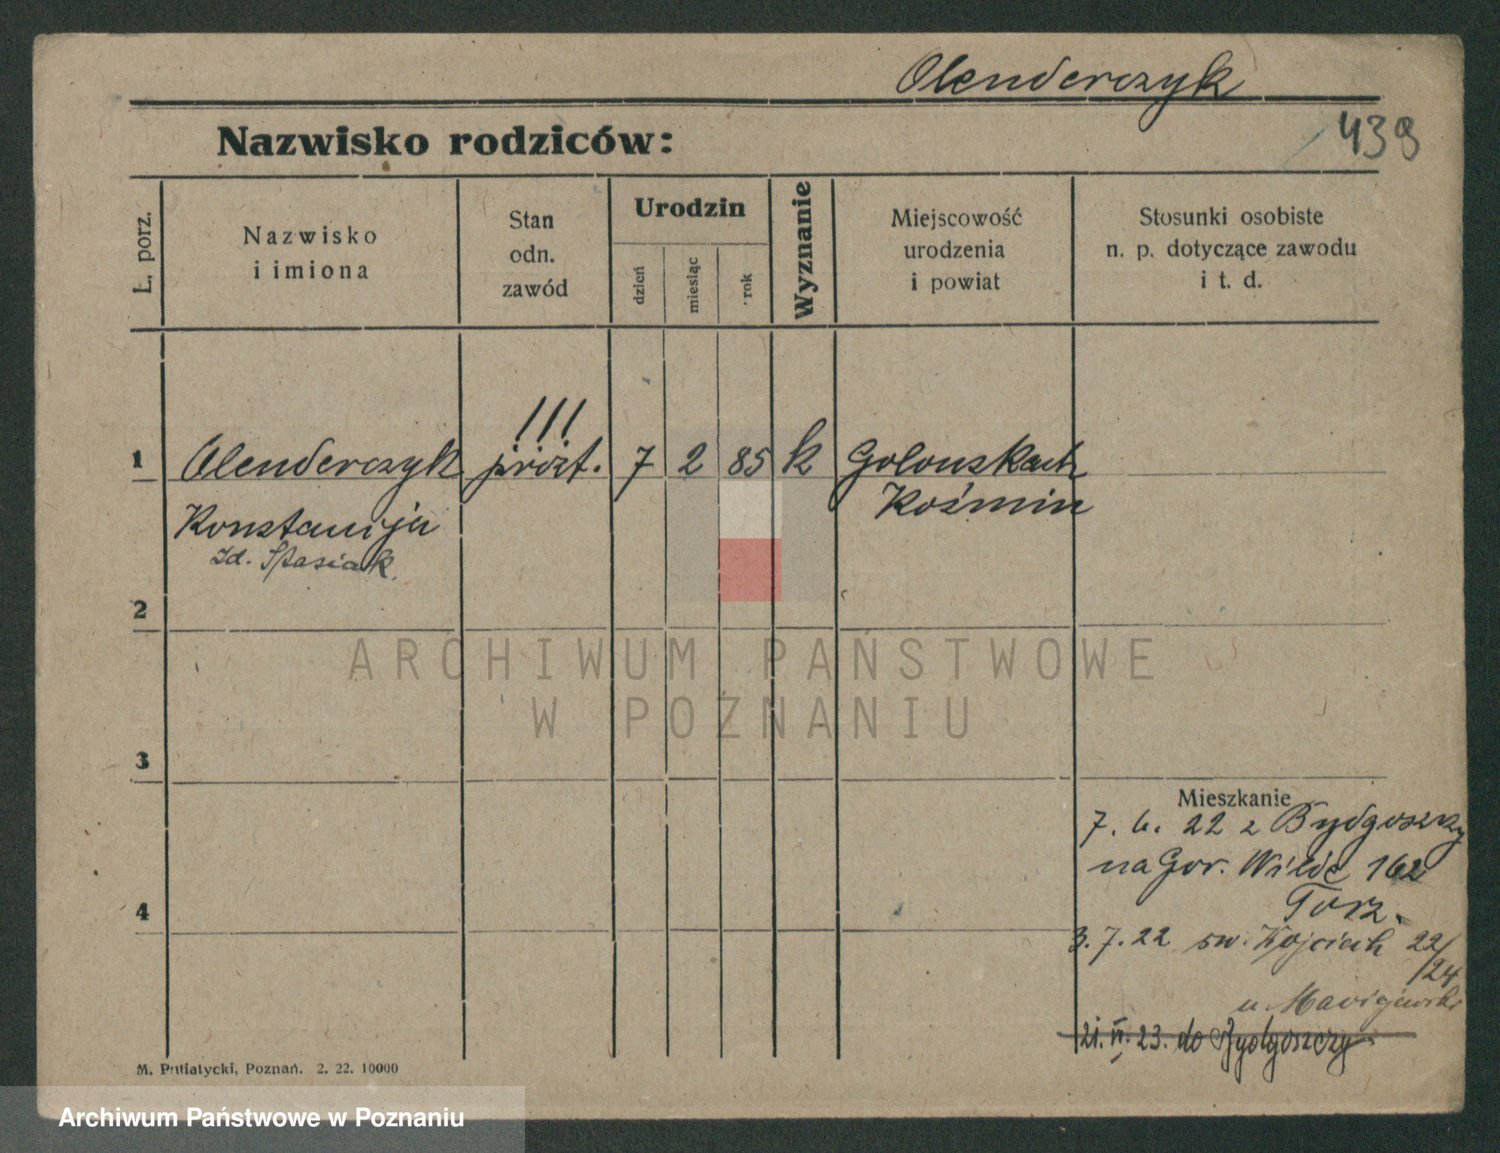 Olenderczyk
Nazwisko rodziców:
439
Ł. porz.
Nazwisko
i imiona
Stan
odn.
zawód
Urodzin
dzień
miesiąc
rok
Wyznanie
Miejscowość
urodzenia
i powiat
Stosunki osobiste
n. p. dotyczące zawodu
i t. d.
1 Olenderczyk 7 2 85 k
Koźmin
Konstancja
Stasiak
2
3
4
ARCHIWUM PAŃSTWOWE
W POZNANIU
Mieszkanie
7. 6. 22 z Bydgoszczy
na Gór. Wilde 162
3.7.22 św. Wojciech 22/
/24
u
21. VI. 23. do Bydgoszczy
M. Putiatycki, Poznań. 2. 22. 10000
Archiwum Państwowe w Poznaniu